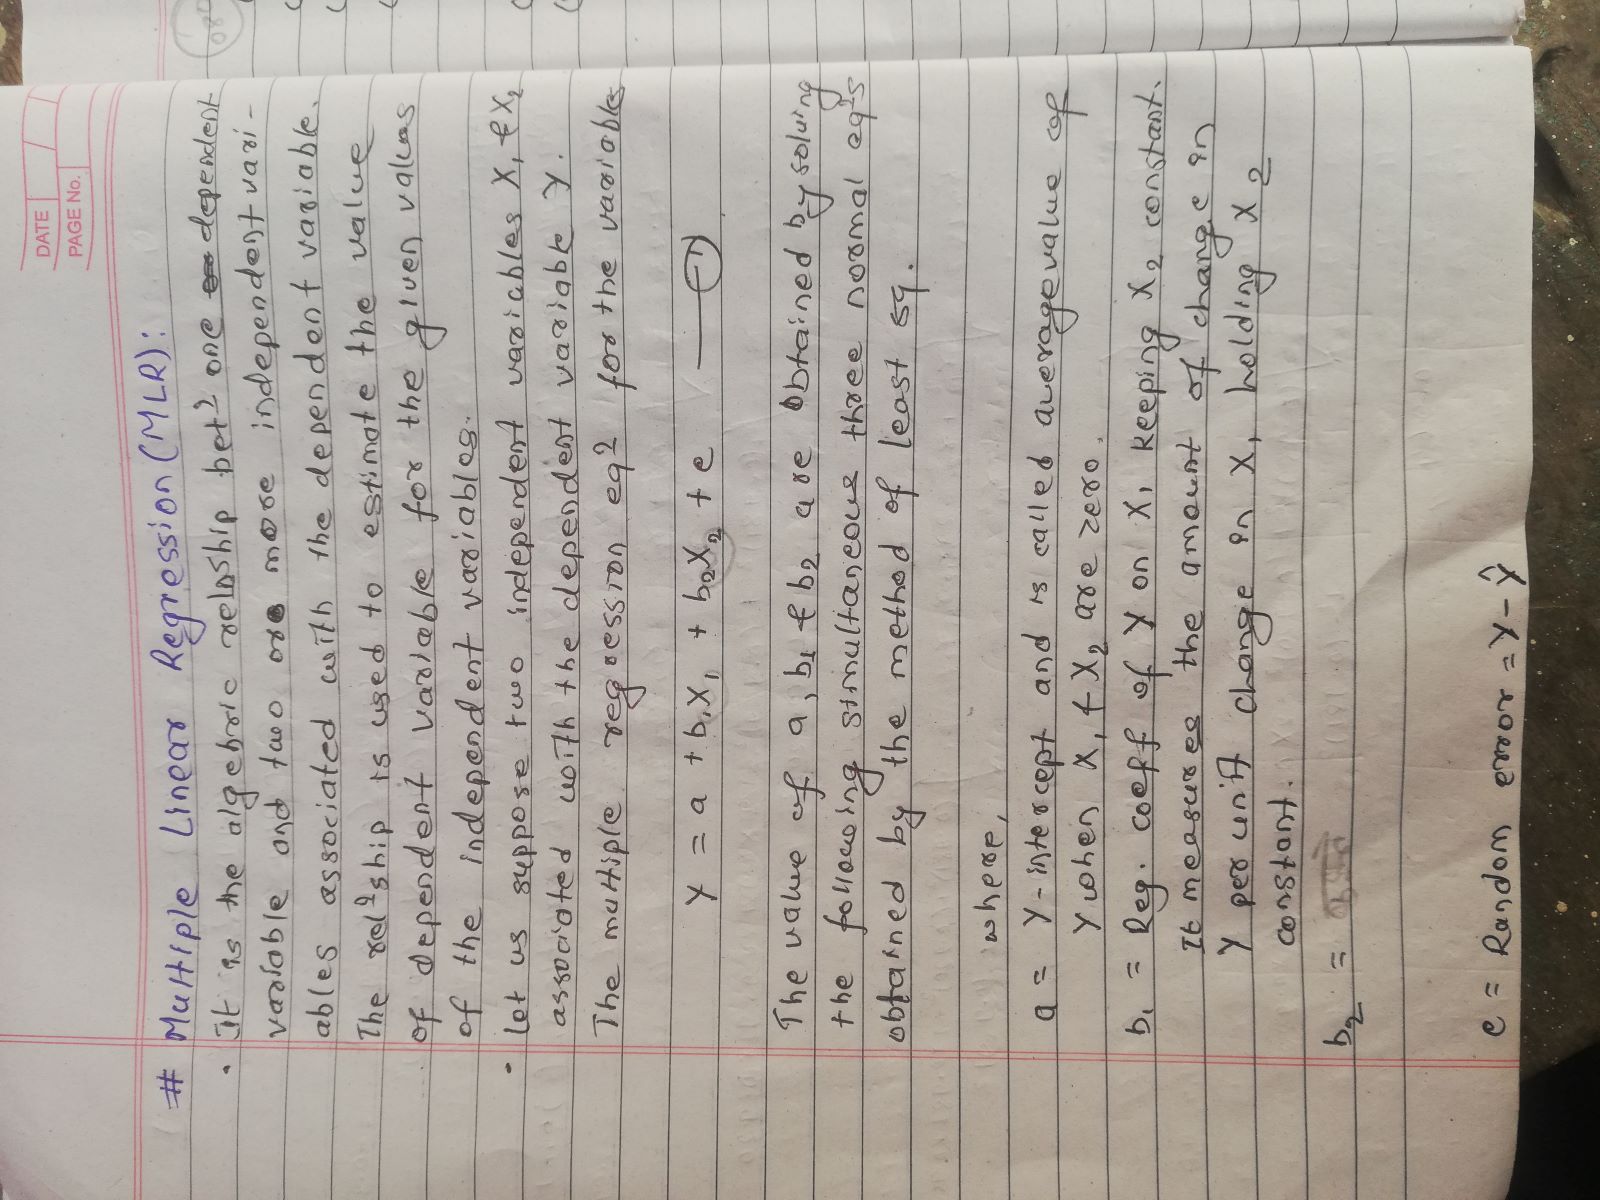 DATE
PAGE No.
# Multiple Linear Regression (MLR):
• It is the algebric reloship betⁿ one dependent
variable and two or more independent vari-
ables associated with the dependent variable.
The relⁿship is used to estimate the value
of dependent variable for the given values
of the independent variables.
• Let us suppose two independent variables X₁ & X₂
associated with the dependent variable Y.
The multiple regression eqⁿ for the variables
Y = a + b₁X₁ + b₂X₂ + e —①
The value of a, b₁ & b₂ are obtained by solving
the following simultaneous three normal eqⁿs
obtained by the method of least sq.
where,
a = Y-intercept and is called average value of
Y when X₁ & X₂ are zero.
b₁ = Reg. coeff of Y on X₁ keeping X₂ constant.
It measures the amount of change in
Y per unit change in X₁ holding X₂
constant.
b₂ =
e = Random error = Y - Ŷ